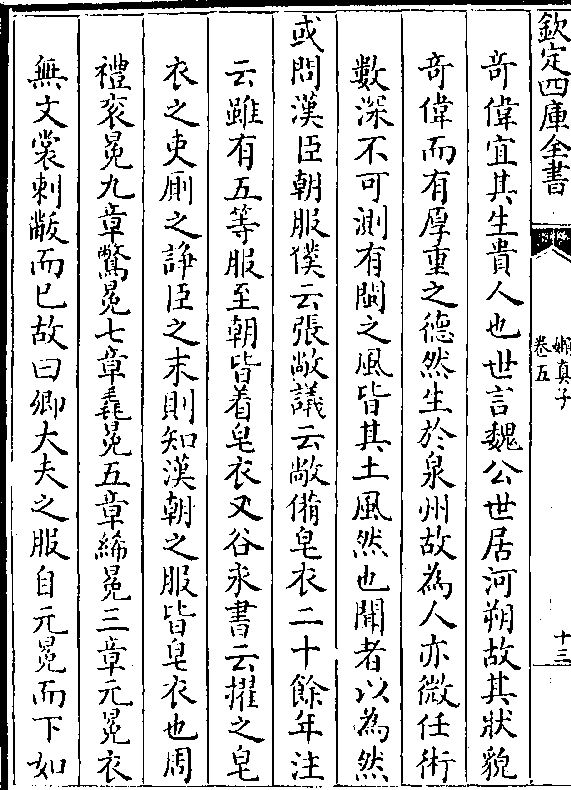 欽定四庫全書
嬾真子
卷五
十三
奇偉宜其生貴人也世言魏公世居河朔故其狀貌
奇偉而有厚重之德然生於泉州故為人亦微任術
數深不可測有閩之風皆其土風然也聞者以為然
或問漢臣朝服僕云張敞議云敞備皂衣二十餘年注
云雖有五等服至朝皆着皂衣又谷永書云擢之皂
衣之吏厠之諍臣之末則知漢朝之服皆皂衣也周
禮衮冕九章鷩冕七章毳冕五章絺冕三章元冕衣
無文裳刺黻而已故曰卿大夫之服自元冕而下如